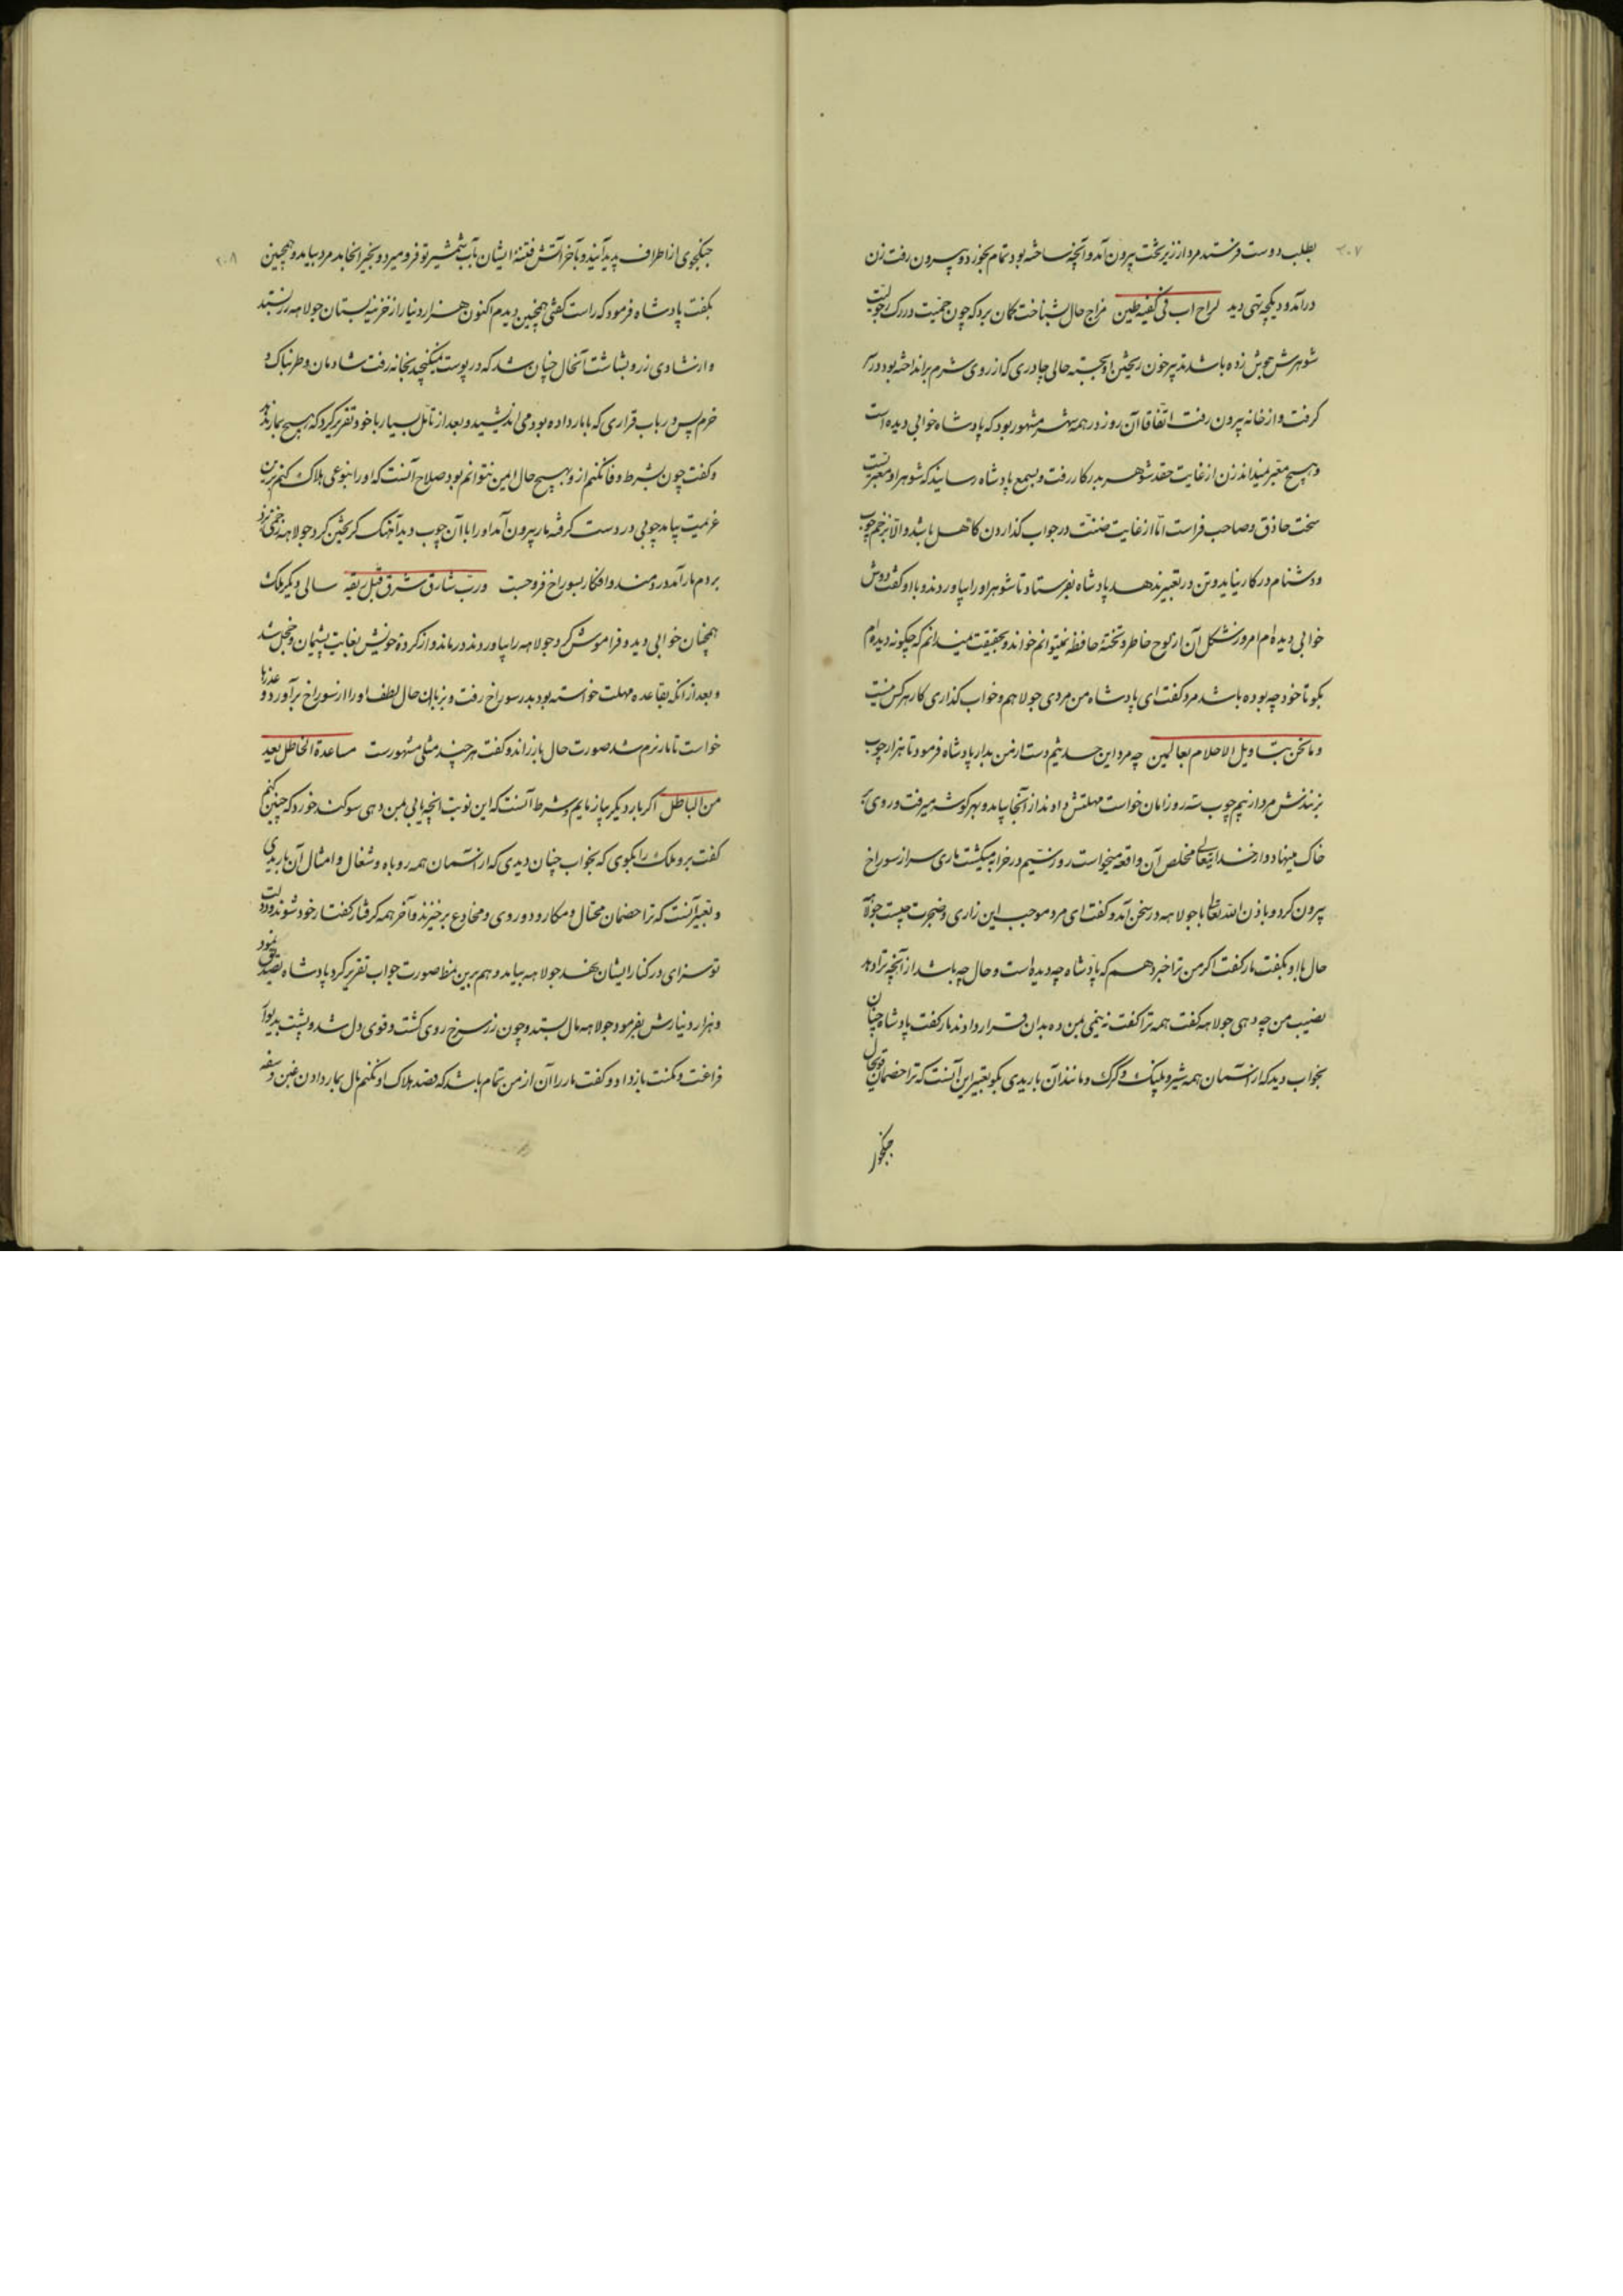 ۲۰۷
بطلب دوست فرستد مرد از زیر تخت بیرون آمد و آنچه ساخته بود تمام بخورد و بیرون رفت زن
درآمد و دیکچه تهی دید مزاج حال بشناخت کمان برد که چون حمیت در رک رجولیت
شوهرش جوش زده باشد تدبیر خون ریختن او بجست حالی چادری که از روی شرم برانداخته بود در سر
کرفت و از خانه بیرون رفت اتفاقا آن روز در همه شهر مشهور بود که پادشاه خوابی دیده است
و هیچ معبر نمیداند زن از غایت حقد شوهر بدر کار رفت و بسمع پادشاه رسانید که شوهر او معبریست
سخت حاذق و صاحب فراست اما از غایت ضنت در جواب کذاردن کاهل باشد و الا بزخم چوب
و دشنام در کار نیاید و تن در تعبیر ندهد پادشاه بفرستاد تا شوهر او را بیاوردند و با او کفت دوش
خوابی دیده‌ام امروز شکل آن از لوح خاطر و تختهٔ حافظه نمیتوانم خواند و بحقیقت نمیدانم که چکونه دیده‌ام
بکو تا خود چه بوده باشد مرد کفت ای پادشاه من مردی جولاهم و خواب کذاری کار هر کس نیست
و ما نحن بتاویل الاحلام بعالمین چه مرد این حدیثم دست از من بدار پادشاه فرمود تا هزار چوب
بزنندش مرد از بیم چوب سه روز امان خواست مهلتش دادند از آنجا بیامد و بهر کوشه میرفت و روی بر
خاک مینهاد و از خدایتعالی مخلص آن واقعه میخواست روز سیم در خرابه میکشت ماری سر از سوراخ
بیرون کرد و باذن الله تعالی با جولاهه در سخن آمد و کفت ای مرد موجب این زاری و ضجرت چیست جولاهه
حال با او بکفت مار کفت اکر من ترا خبر دهم که پادشاه چه دیده است و حال چه باشد از آنچه ترا دهد
نصیب من چه دهی جولاهه کفت همه ترا کفت نه نیمی بمن ده بدان قرار دادند مار کفت پادشاه چنان
بخواب دید که از آسمان همه شیر و پلنک و کرک و مانند آن باریدی بکو تعبیر این آنست که ترا خصمان
جنکجوی
۲۰۸
جنکجوی از اطراف پدید آیند و بآخر آتش فتنهٔ ایشان بآب شمشیر تو فرو میرد و بخیر انجامد مرد بیامد و همچنین
بکفت پادشاه فرمود که راست کفتی همچنین دیدم اکنون هزار دینار از خزینه بستان جولاهه زر بستد
و از شادی زر و بشاشت آنحال چنان شد که در پوست نمیکنجید بخانه رفت شادمان و طربناک و
خرم پس در باب قراری که با مار داده بود می‌اندیشید و بعد از تامل بسیار با خود تقریر کرد که هیچ بمار ندهد
و کفت چون بشرط وفا نکنم از و بهیچ حال ایمن نتوانم بود صلاح آنست که او را بنوعی هلاک کنم برین
عزیمت بیامد چوبی در دست کرفته مار بیرون آمد او را با آن چوب دید آهنک کریختن کرد جولاهه زخمی بزد
بر دم مار آمد دردمند و افکار بسوراخ فرو جست و رب شارق شرق قبل ریقه سالی دیکر ملک
همچنان خوابی دید و فراموش کرد جولاهه را بیاوردند درماند و از کردهٔ خویش بغایت پشیمان و خجل شد
و بعد از آنکه بقاعده مهلت خواسته بود بدر سوراخ رفت و بزبان حال بلطف او را از سوراخ برآورد و عذرها
خواست تا مار نرم شد صورت حال باز راند و کفت هر چند مثلی مشهورست مساعدة الخاطل یعد
من الباطل اکر بار دیکر بیازمایم و شرط آنست که این نوبت آنچه یابی بمن دهی سوکند خورد که چنین کنم
کفت برو ملک را بکوی که بخواب چنان دیدی که از آسمان همه روباه و شغال و امثال آن باریدی
و تعبیر آنست که ترا خصمان محتال و مکار و دوروی و مخادع برخیزند و آخر همه کرفتار کفتار خود شوند و دولت
تو سزای در کنار ایشان نهد جولاهه بیامد و هم برین نمط صورت جواب تقریر کرد پادشاه تصدیق نمود
و هزار دینارش بفرمود جولاهه مال بستد و چون زر سرخ روی کشت و قوی دل شد و پشت بدیوار
فراغت و مکنت باز داد و کفت مار را آن از من تمام باشد که قصد هلاک او نکنم مال بمار دادن غبن و سفه